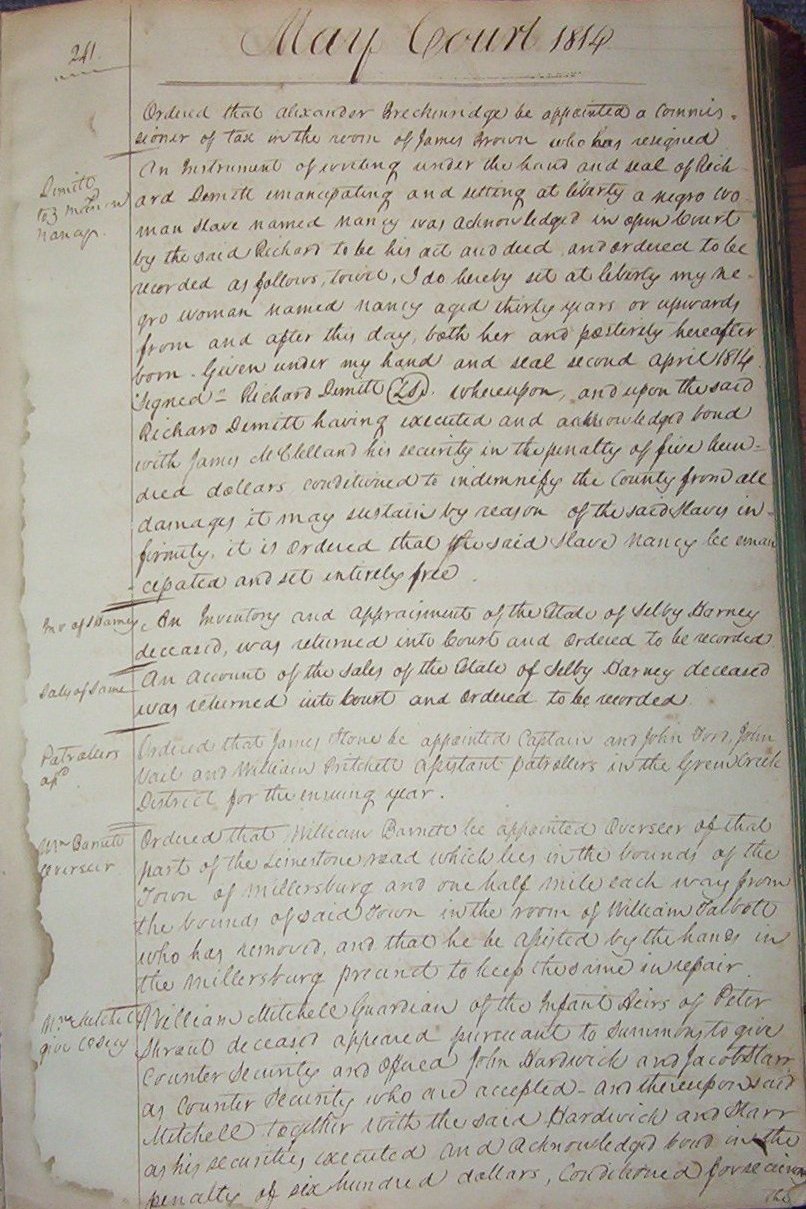 241.
May Court 1814
Ordered that Alexander Breckenridge be appointed a Commis-
sioner of tax in the room of James Brown who has resigned
Dimitt
to
Nancy.
An Instrument of writing under the hand and seal of Rich-
ard Dimitt emancipating and setting at liberty a negro wo-
man slave named Nancy was acknowledged in open Court
by the said Richard to be his act and deed and ordered to be
recorded as follows, towit, I do hereby set at liberty my ne-
gro woman named Nancy aged thirty years or upwards
from and after this day, both her and posterety hereafter
born. Given under my hand and seal second April 1814.
Signed - Richard Dimitt (LS). whereupon, and upon the said
Richard Dimitt having executed and acknowledged bond
with James McClelland his security in the penalty of five hun-
dred dollars conditioned to indemnify the County from all
damages it may sustain by reason of the said slaves in-
firmity, it is ordered that the said slave Nancy be eman
cipated and set entirely free.
Inv of S Barney
An Inventory and appraisment of the Estate of Selby Barney
deceased, was returned into Court and ordered to be recorded
Sales of Same
An account of the sales of the Estate of Selby Barney deceased
was returned into Court and ordered to be recorded.
Patrollers
apd
Ordered that James Stone be appointed Captain and John Ford, John
Vail and William Pritchett assistant patrollers in the Green Creek
District for the ensuing year.
Wm Barnett
Overseer
Ordered that William Barnett be appointed Overseer of that
part of the Limestone road which lies in the bounds of the
Town of Millersburg and one half mile each way from
the bounds of said Town in the room of William Talbott
who has removed, and that he be assisted by the hands in
the Millersburg precinct to keep the same in repair
Wm Mitchell
give Co Secy
William Mitchell Guardian of the Infant Heirs of Peter
Shraut deceased appeared pursuant to summons to give
Counter Security and offered John Hardwich and Jacob Starr
as Counter Security who are accepted - and thereupon said
Mitchell together with the said Hardwich and Starr
as his securities executed and acknowledged bond in the
penalty of six hundred dollars, Conditioned for
the